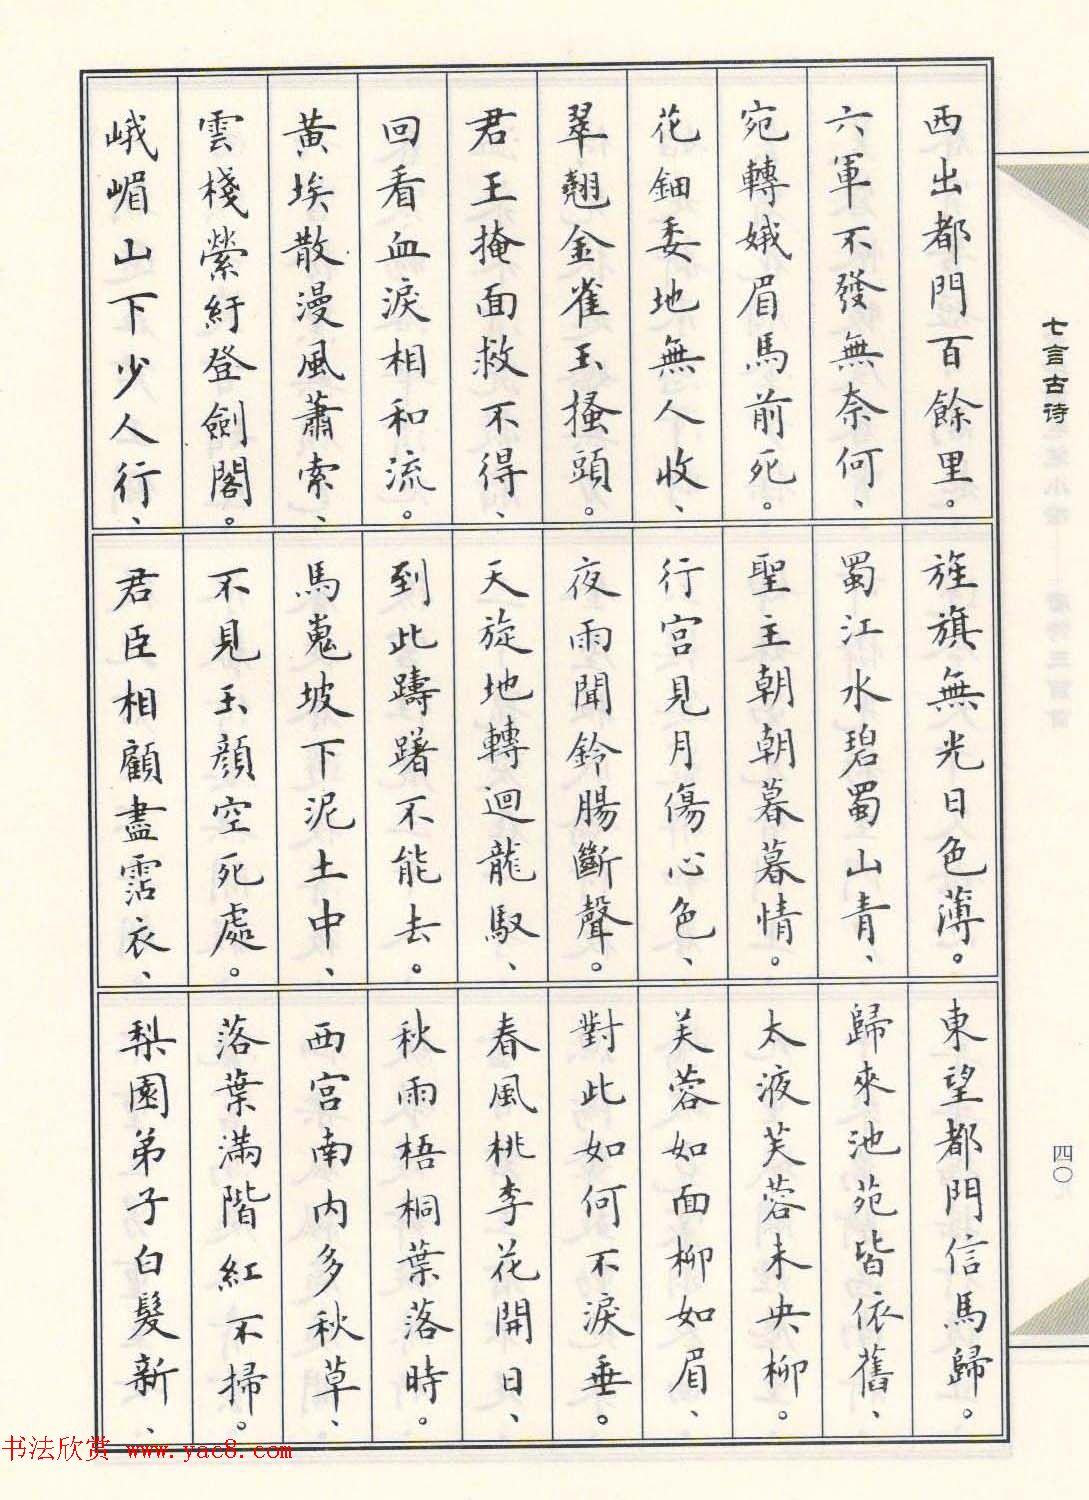 西出都門百餘里。
六軍不發無奈何、
宛轉娥眉馬前死。
花鈿委地無人收、
翠翹金雀玉搔頭。
君王掩面救不得、
回看血淚相和流。
黃埃散漫風蕭索、
雲棧縈紆登劍閣。
峨嵋山下少人行、
旌旗無光日色薄。
蜀江水碧蜀山青、
聖主朝朝暮暮情。
行宮見月傷心色、
夜雨聞鈴腸斷聲。
天旋地轉迴龍馭、
到此躊躇不能去。
馬嵬坡下泥土中、
不見玉顏空死處。
君臣相顧盡霑衣、
東望都門信馬歸。
歸來池苑皆依舊、
太液芙蓉未央柳。
芙蓉如面柳如眉、
對此如何不淚垂。
春風桃李花開日、
秋雨梧桐葉落時。
西宮南內多秋草、
落葉滿階紅不掃。
梨園弟子白髮新、
七言古诗
四〇
书法欣赏 www.yac8.com